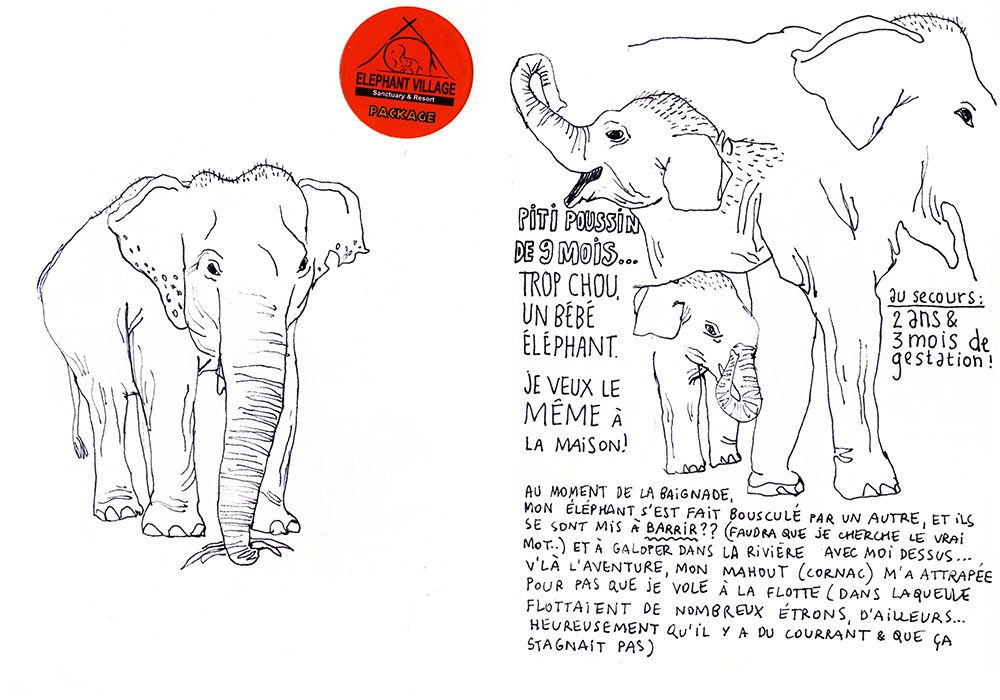 ELEPHANT VILLAGE
Sanctuary & Resort
PACKAGE
PITI POUSSIN
DE 9 MOIS...
TROP CHOU,
UN BÉBÉ
ÉLÉPHANT.
JE VEUX LE
MÊME À
LA MAISON!
au secours:
2 ans &
3 mois de
gestation!
AU MOMENT DE LA BAIGNADE,
MON ÉLÉPHANT S'EST FAIT BOUSCULÉ PAR UN AUTRE, ET ILS
SE SONT MIS À BARRIR?? (FAUDRA QUE JE CHERCHE LE VRAI
MOT..) ET À GALOPER DANS LA RIVIÈRE AVEC MOI DESSUS...
V'LÀ L'AVENTURE, MON MAHOUT (CORNAC) M'A ATTRAPÉE
POUR PAS QUE JE VOLE À LA FLOTTE (DANS LAQUELLE
FLOTTAIENT DE NOMBREUX ÉTRONS, D'AILLEURS...
HEUREUSEMENT QU'IL Y A DU COURRANT & QUE ÇA
STAGNAIT PAS)